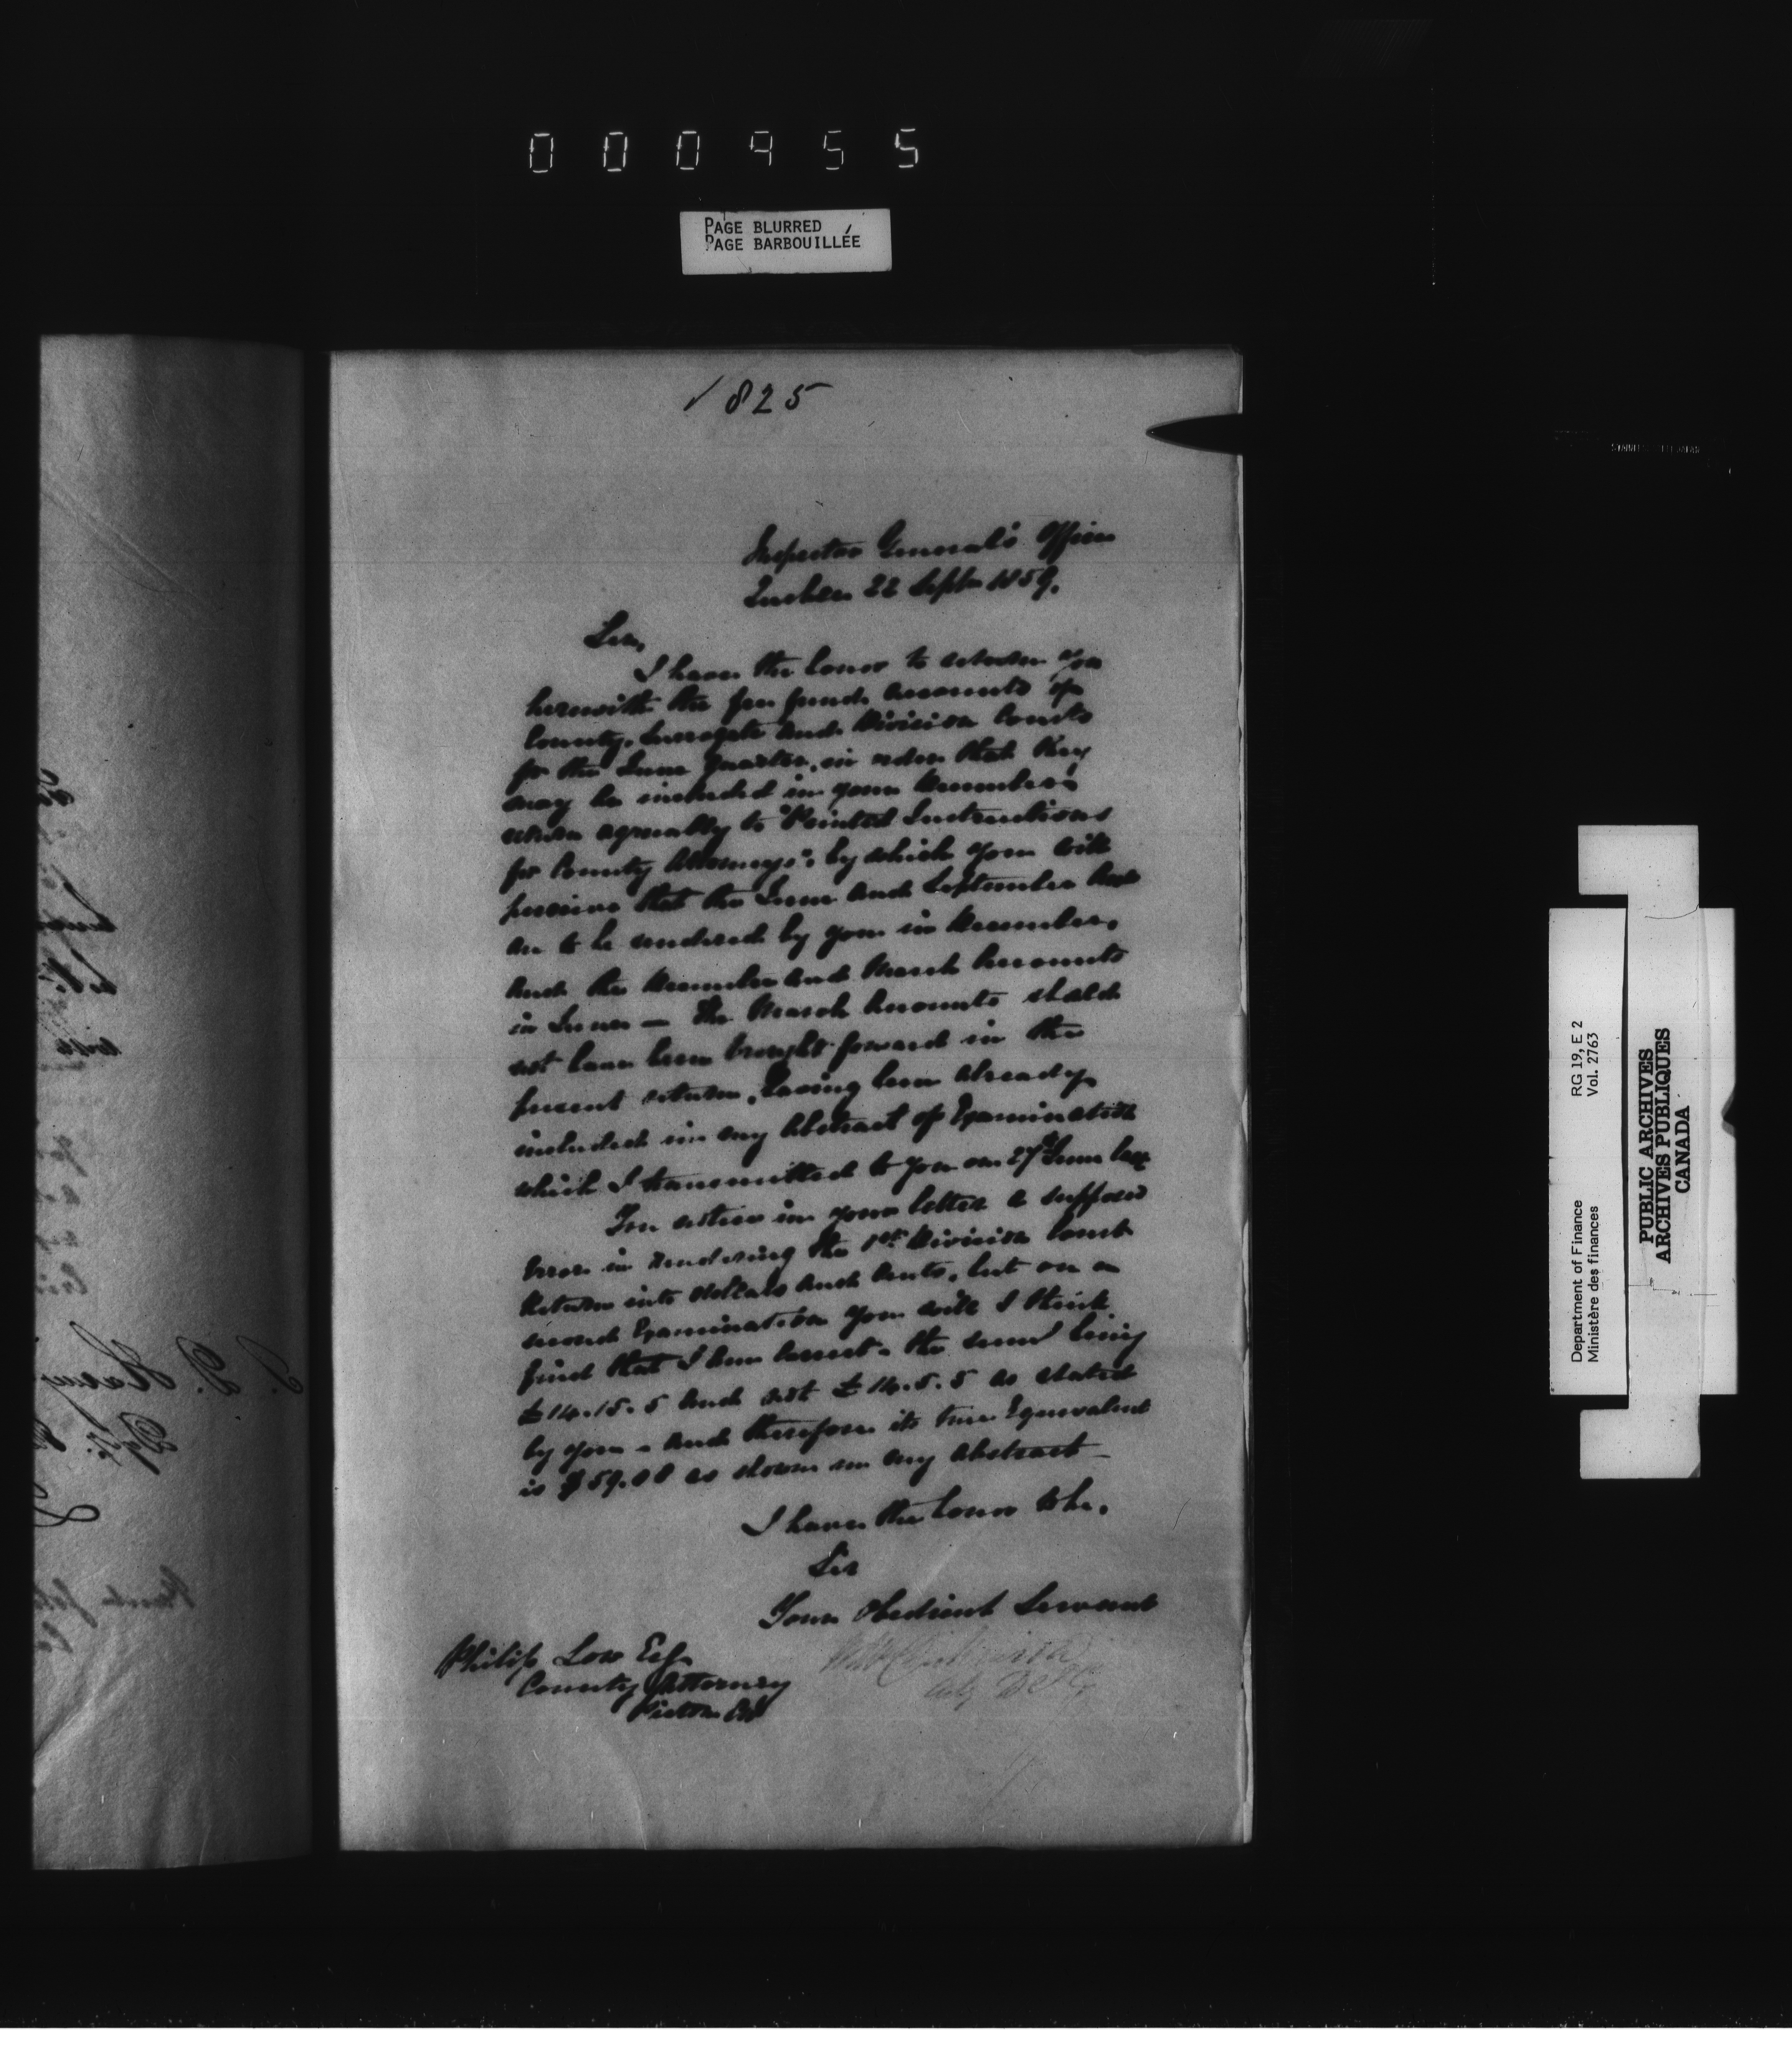 000955
PAGE BLURRED
PAGE BARBOUILLÉE
1825
Inspector General's Office
Quebec 22 Septr 1859.
Sir,
I have the honor to return you
herewith the fee fund accounts of
County, Surrogate and Division Courts
for the June Quarter, in order that they
may be included in your December's
return agreeably to "Printed Instructions
for County Attorneys": by which you will
perceive that the June and September
are to be rendered by you in December,
and the December and March Accounts
in June — The March Accounts should
not have been brought forward in the
present return, having been already
included in my Abstract of Examination
which I transmitted to you on 27th June last
You notice in your letter a supposed
Error in rendering the 1st Division Court
Return into dollars and cents, but on a
second Examination you will I think
find that I am correct - the sum being
£14.15.5 and not £14.5.5 as stated
by you - and therefore its true Equivalent
is $59.08 as shown in my abstract -
I have the honor to be,
Sir
Your Obedient Servant
Philip Low Esq
County Attorney
Picton CW
Department of Finance RG 19, E 2
Ministère des finances Vol. 2763
PUBLIC ARCHIVES
ARCHIVES PUBLIQUES
CANADA